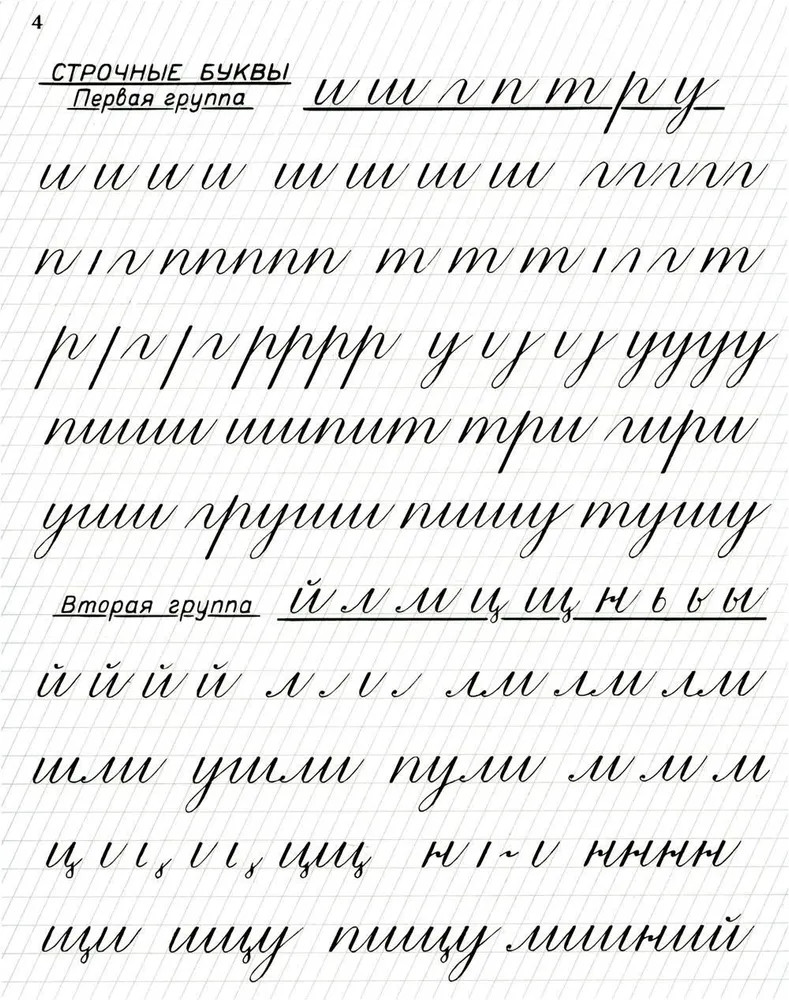 4
СТРОЧНЫЕ БУКВЫ
Первая группа и ш г п т р у
и и и и ш ш ш ш ггггг
п г ппппп т т т г т
р г г рррр у у у уууу
пиши шипит три гири
уши груши пишу тушу
Вторая группа й л м ц щ н ь ь ы
й й й й л лм лм лм
шли ушли пули м м м
ц цщ н нннн
щи ищу пищу лишний